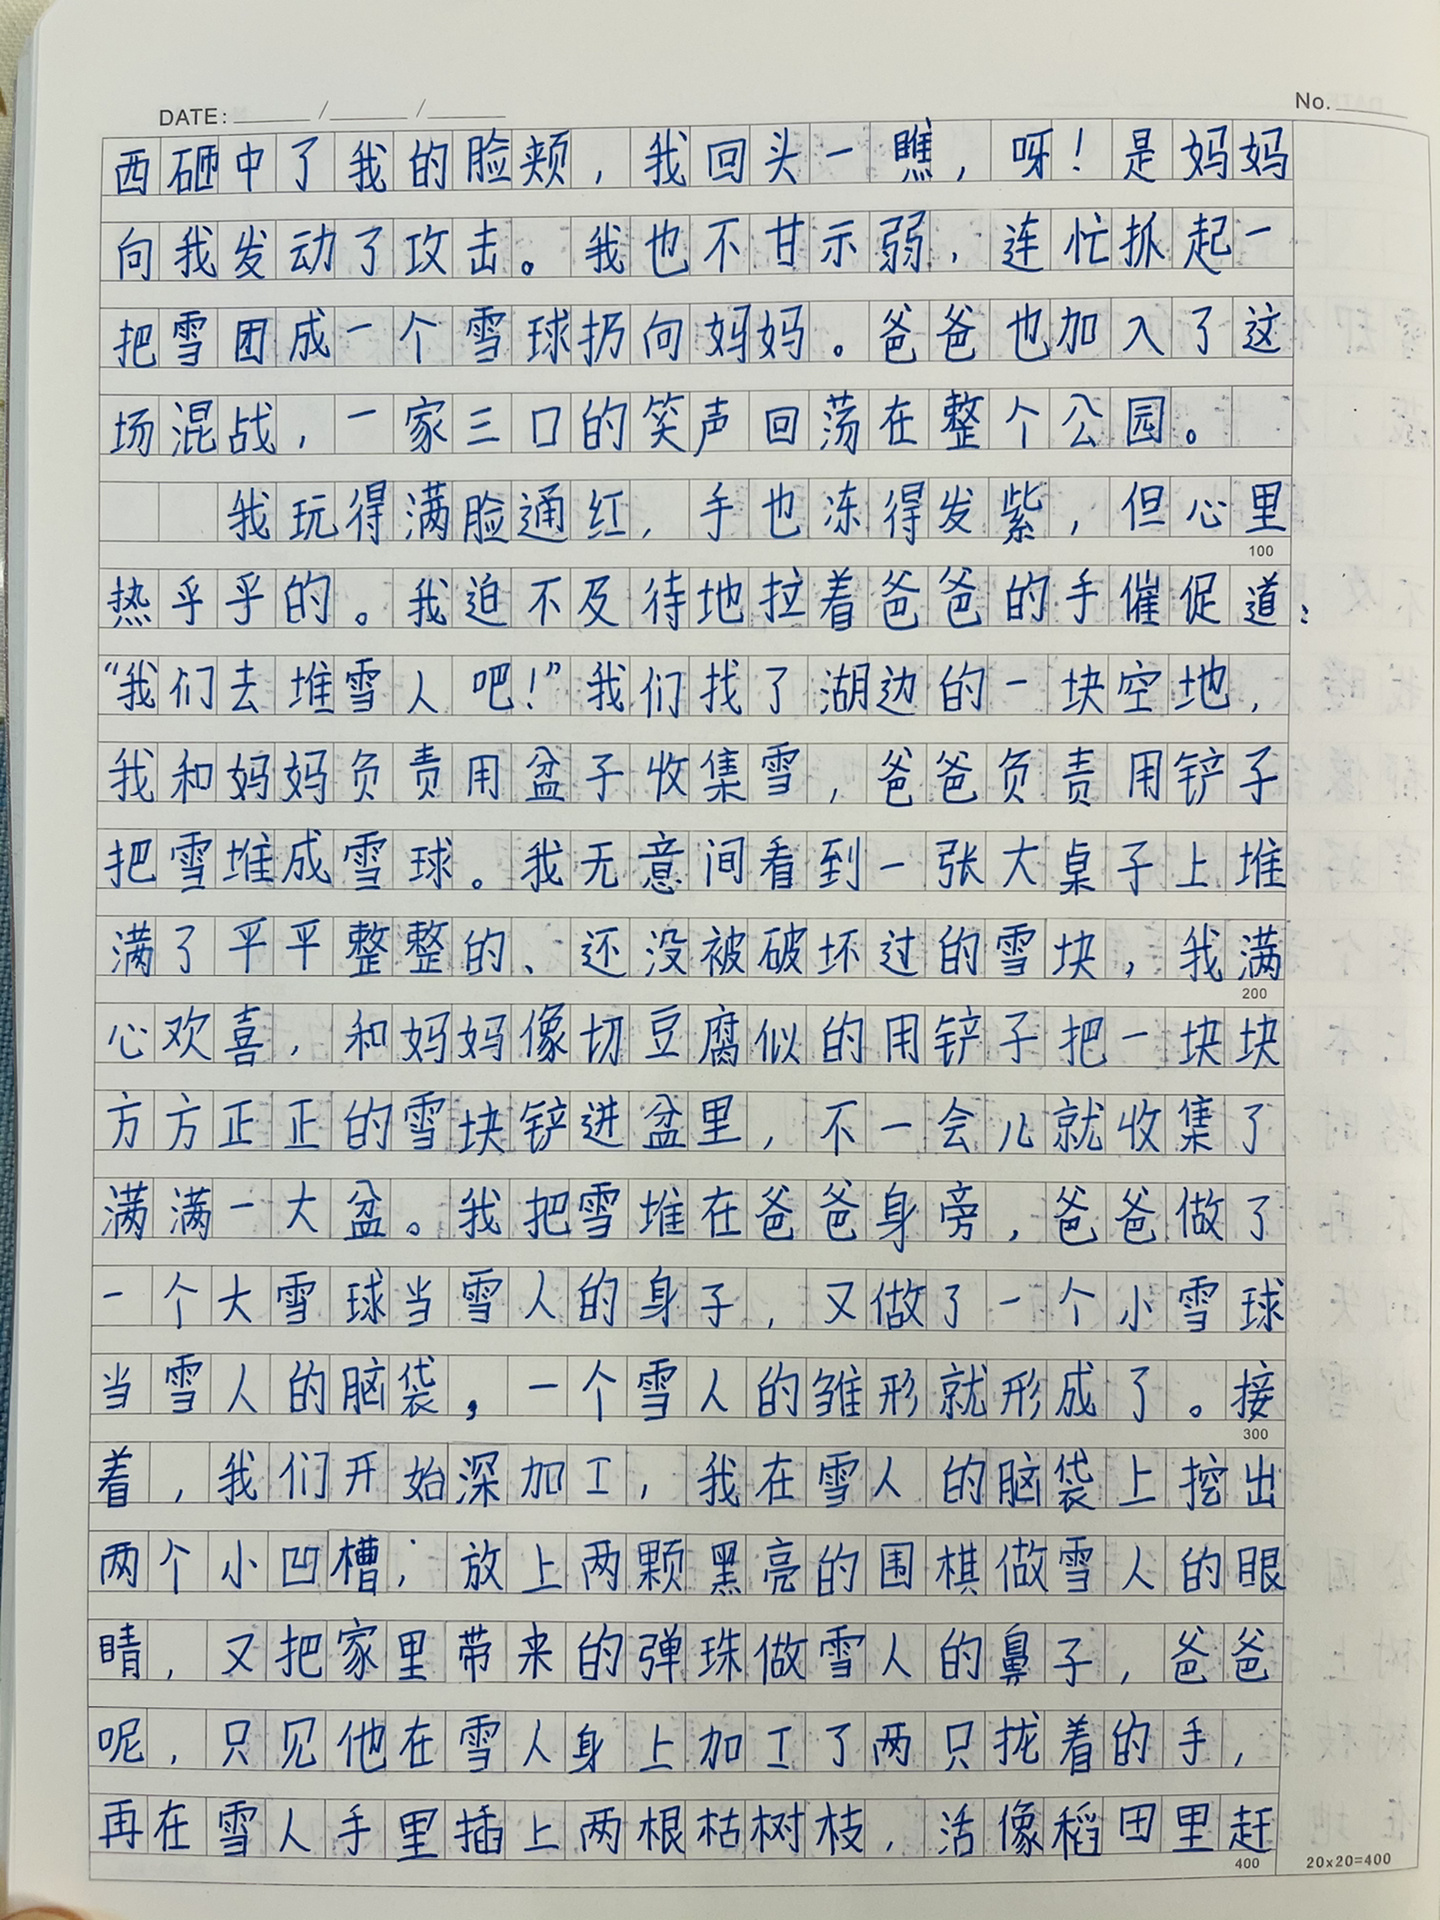 DATE: ____/____/____
No. ____
西砸中了我的脸颊，我回头一瞧，呀！是妈妈
向我发动了攻击。我也不甘示弱，连忙抓起一
把雪团成一个雪球扔向妈妈。爸爸也加入了这
场混战，一家三口的笑声回荡在整个公园。
我玩得满脸通红，手也冻得发紫，但心里
100
热乎乎的。我迫不及待地拉着爸爸的手催促道：
“我们去堆雪人吧！”我们找了湖边的一块空地，
我和妈妈负责用盆子收集雪，爸爸负责用铲子
把雪堆成雪球。我无意间看到一张大桌子上堆
满了平平整整的、还没被破坏过的雪块，我满
200
心欢喜，和妈妈像切豆腐似的用铲子把一块块
方方正正的雪块铲进盆里，不一会儿就收集了
满满一大盆。我把雪堆在爸爸身旁，爸爸做了
一个大雪球当雪人的身子，又做了一个小雪球
当雪人的脑袋，一个雪人的雏形就形成了。接
300
着，我们开始深加工，我在雪人的脑袋上挖出
两个小凹槽，放上两颗黑亮的围棋做雪人的眼
睛，又把家里带来的弹珠做雪人的鼻子，爸爸
呢，只见他在雪人身上加工了两只拢着的手，
再在雪人手里插上两根枯树枝，活像稻田里赶
400
20x20=400